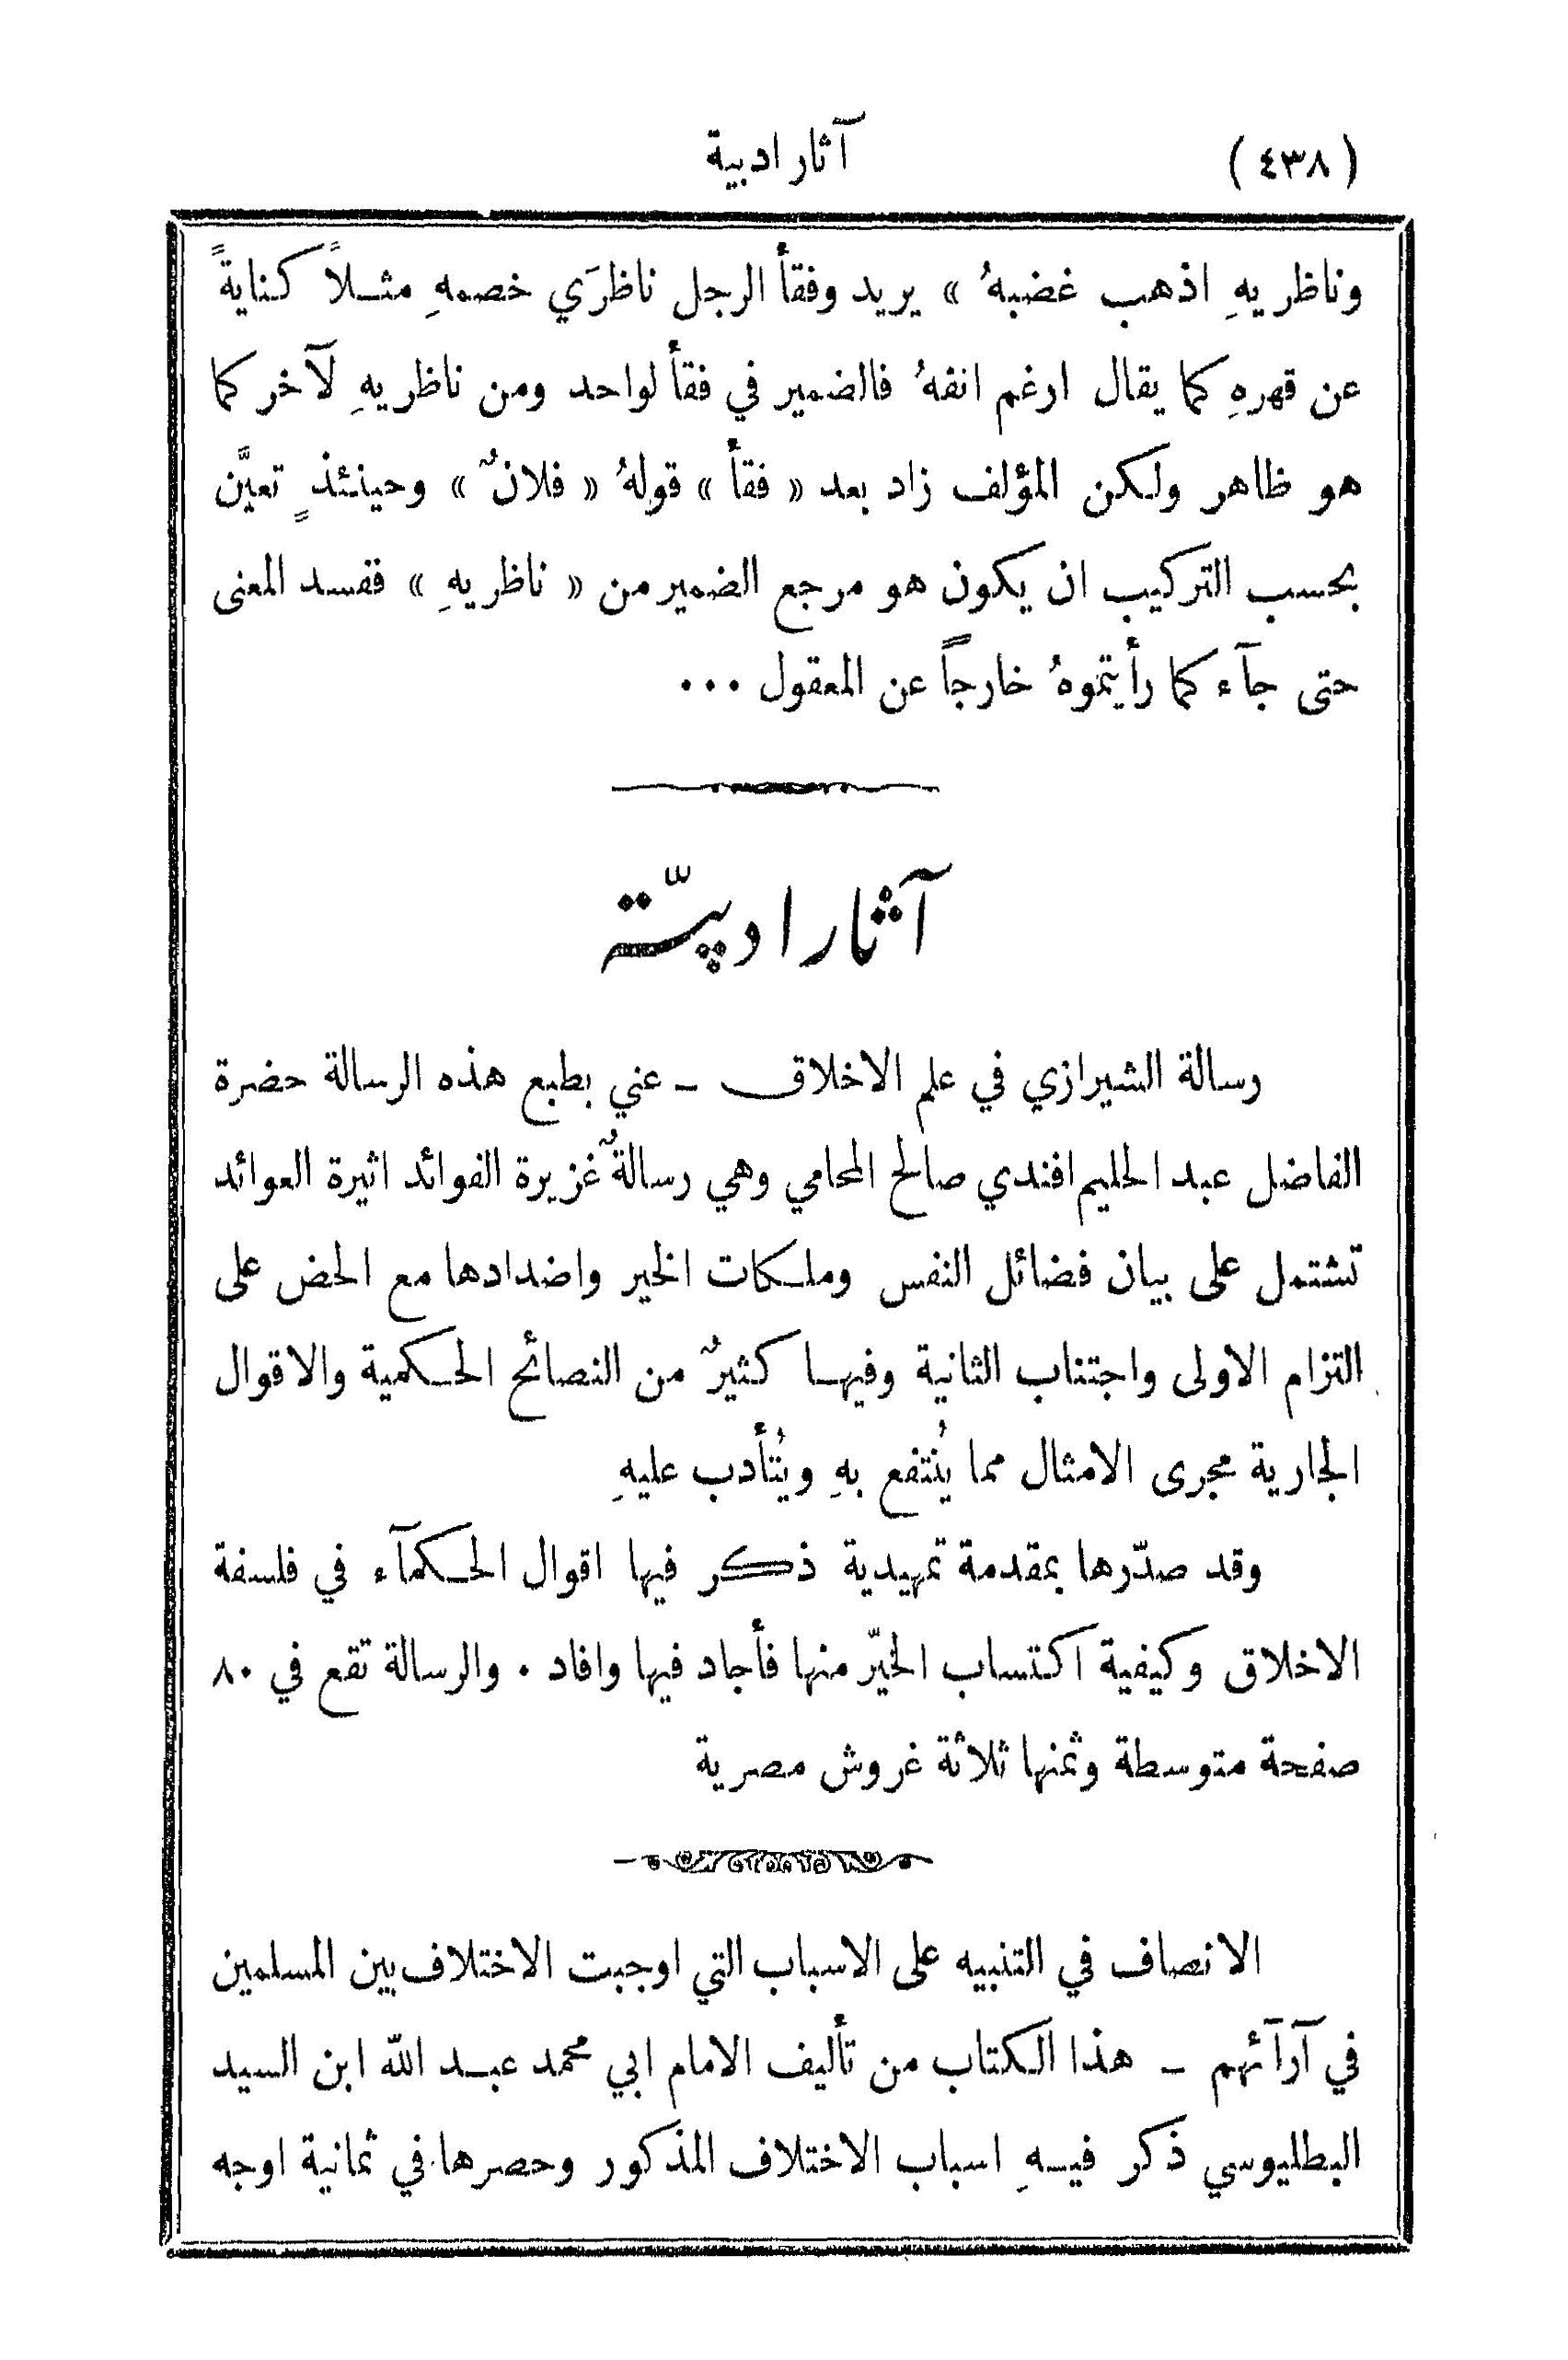 (٤٣٨) آثار ادبية
وناظريهِ اذهب غضبهُ » يريد وفقأ الرجل ناظرَي خصمهِ مثلاً كنايةً
عن قهرهِ كما يقال ارغم انفهُ فالضمير في فقأ لواحد ومن ناظريهِ لآخر كما
هو ظاهر ولكن المؤلف زاد بعد « فقأ » قولهُ « فلانٌ » وحينئذٍ تعيَّن
بحسب التركيب ان يكون هو مرجع الضمير من « ناظريهِ » ففسد المعنى
حتى جآء كما رأيتموهُ خارجاً عن المعقول ...
آثار ادبيّة
رسالة الشيرازي في علم الاخلاق – عني بطبع هذه الرسالة حضرة
الفاضل عبد الحليم افندي صالح المحامي وهي رسالةٌ غزيرة الفوائد اثيرة العوائد
تشتمل على بيان فضائل النفس وملكات الخير واضدادها مع الحض على
التزام الاولى واجتناب الثانية وفيها كثيرٌ من النصائح الحكمية والاقوال
الجارية مجرى الامثال مما يُنتفع بهِ ويُتأدب عليهِ
وقد صدّرها بمقدمة تمهيدية ذكر فيها اقوال الحكمآء في فلسفة
الاخلاق وكيفية اكتساب الخيّر منها فأجاد فيها وافاد . والرسالة تقع في ٨٠
صفحة متوسطة وثمنها ثلاثة غروش مصرية
الانصاف في التنبيه على الاسباب التي اوجبت الاختلاف بين المسلمين
في آرآئهم – هذا الكتاب من تأليف الامام ابي محمد عبد الله ابن السيد
البطليوسي ذكر فيهِ اسباب الاختلاف المذكور وحصرها في ثمانية اوجه